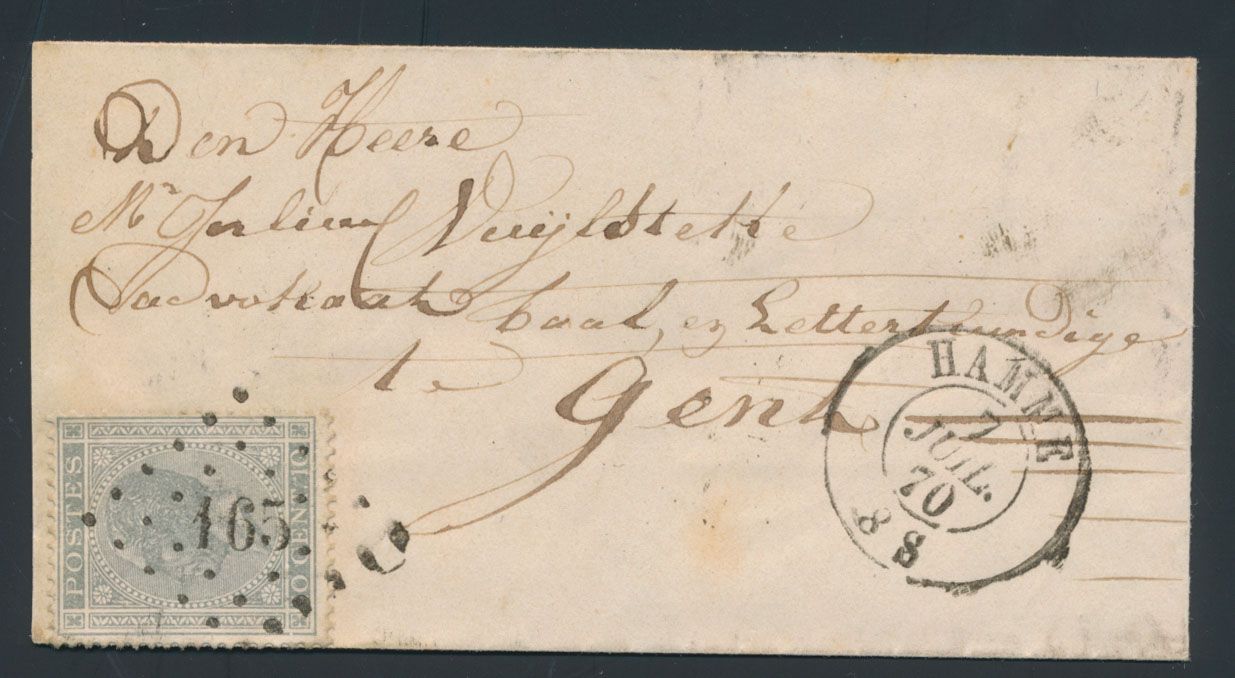 Den Heere
Mr Julius Vuijlsteke
advokaat taal en Letterkundige
te
Gent
POSTES
10 CENT. 10
165
HAMME
7
JUIL.
70
8 S